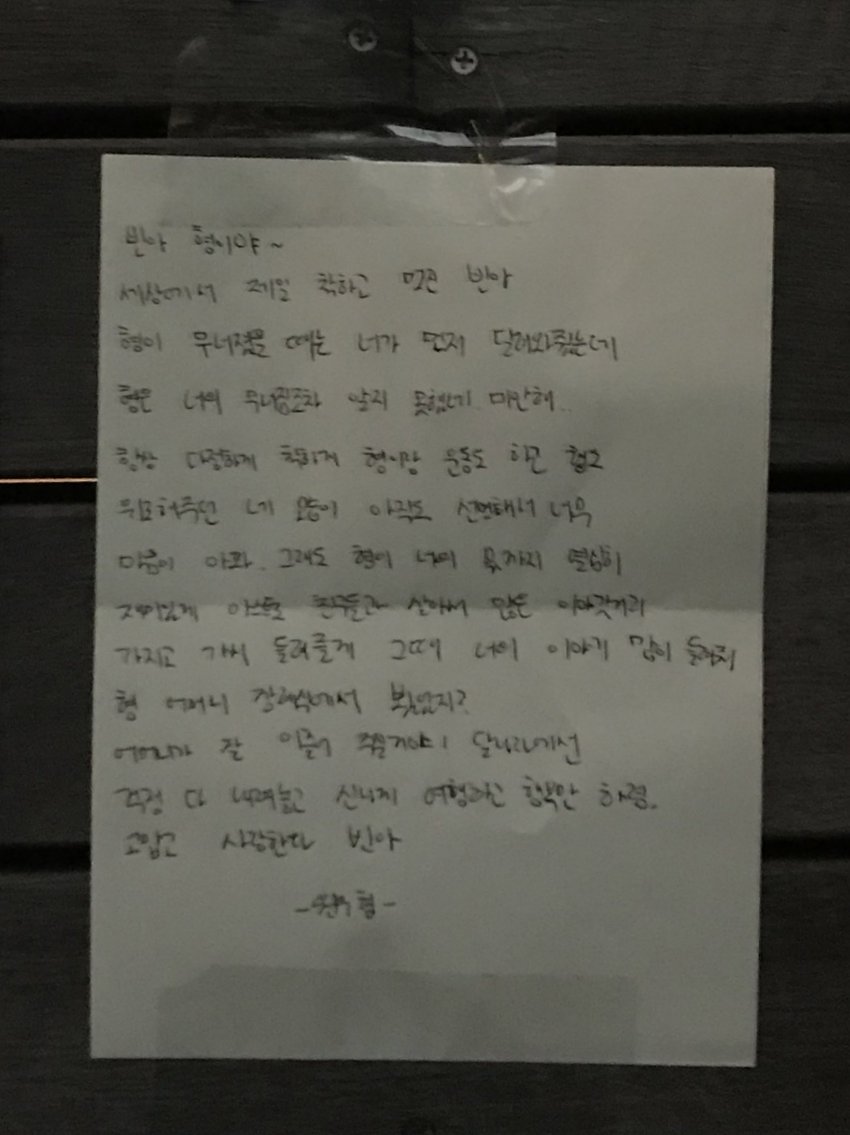 빈아 형이야~
세상에서 제일 착하고 멋진 빈아
형이 무너졌을 때는 너가 먼저 달려와줬는데
형은 너의 무너짐조차 알지 못했네. 미안해..
항상 다정하게 착하게 형이랑 운동도 하곤 했고
위로해주던 네 모습이 아직도 선명해서 너무
마음이 아파. 그래도 형이 너의 몫까지 열심히
재미있게 아스트로 친구들과 살아서 많은 이야깃거리
가지고 가서 들려줄게 그때 너의 이야기 많이 들려줘
형 어머니 장례식에서 뵀었지?
어머니가 잘 이끌어 주실거야! 달나라에선
걱정 다 내려놓고 신나게 여행하고 행복만 하렴.
고맙고 사랑한다 빈아